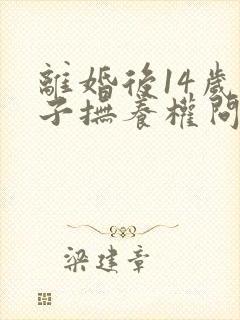 離婚後14歲
子撫養權問
梁建章